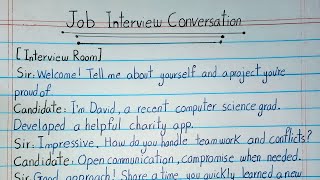 Job Interview Conversation
[Interview Room]
Sir: Welcome! Tell me about yourself and a project you're
proud of.
Candidate: I'm David, a recent computer science grad.
Developed a helpful charity app.
Sir: Impressive, How do you handle teamwork and conflicts?
Candidate: Open communication, compromise when needed.
Sir: Good approach! Share a time you quickly learned a new